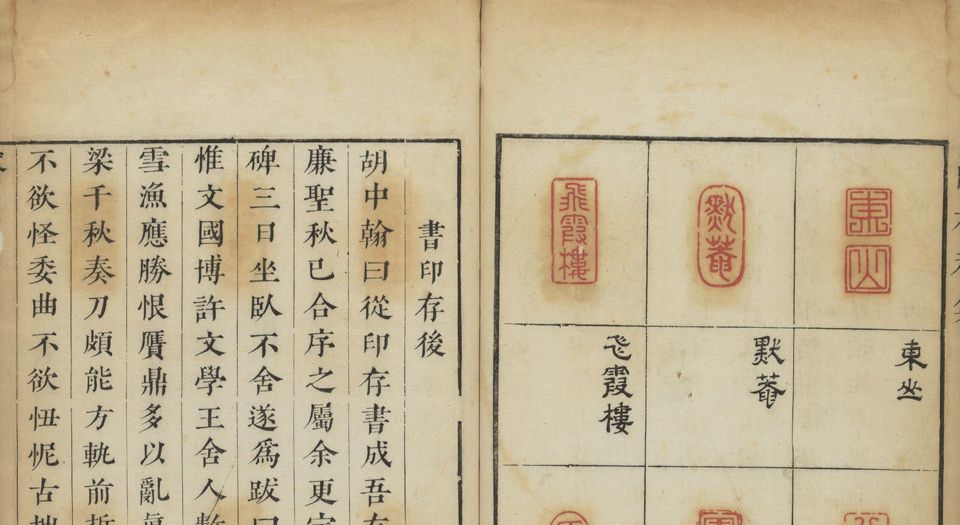 東山
默菴
飛霞樓
東山
默菴
飛霞樓
書印存後
胡中翰曰從印存書成吾
廉聖秋已合序之屬余更
碑三日坐臥不舍遂爲跋曰
惟文國博許文學王舍人數
雪漁應勝恨贋鼎多以亂眞
梁千秋奏刀頗能方軌前哲
不欲怪委曲不欲忸怩古拙